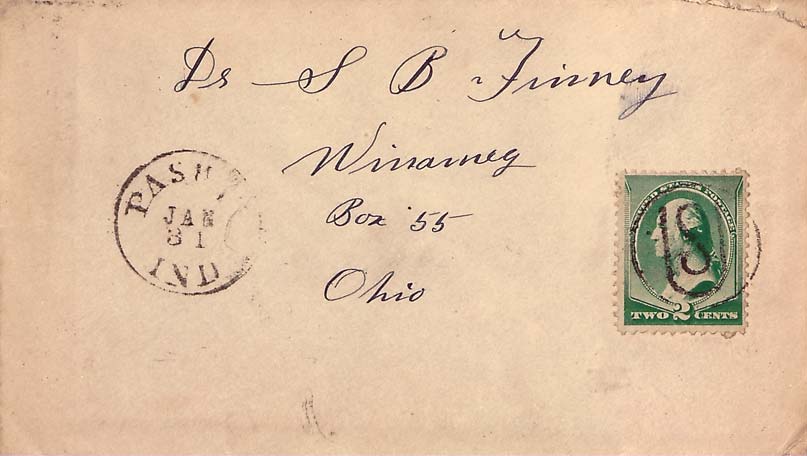 Dr S B Finney
Winameg
Box 55
Ohio
JAN
31
IND
UNITED STATES POSTAGE
TWO 2 CENTS